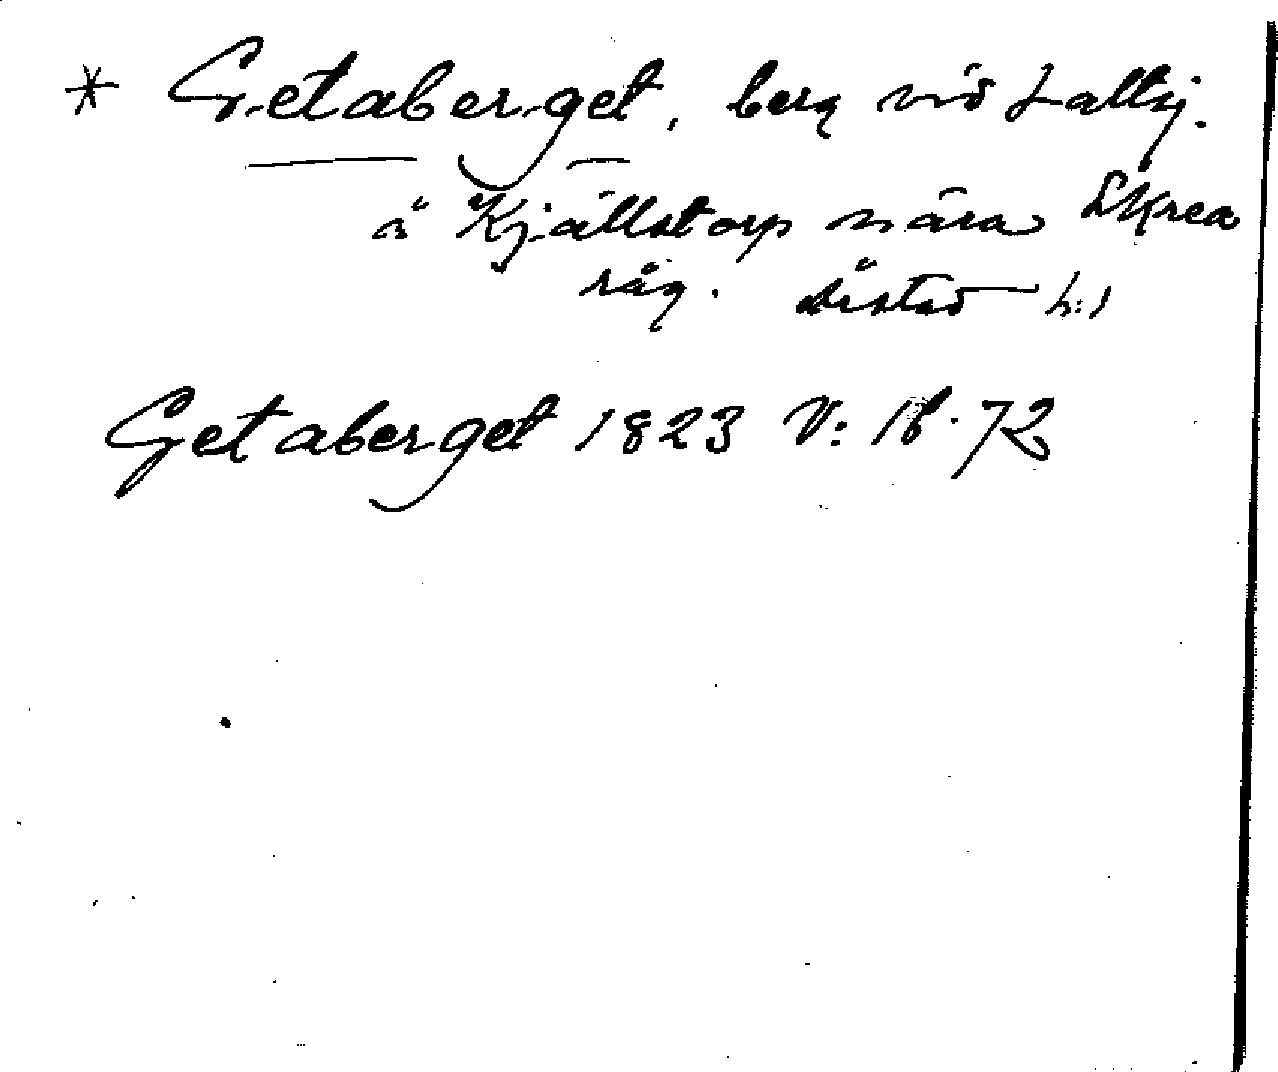 * Getaberget, berg vid Lallsj.
å Kjällstorp nära Skrea
råg. h:1
Getaberget 1823 V: 18.72